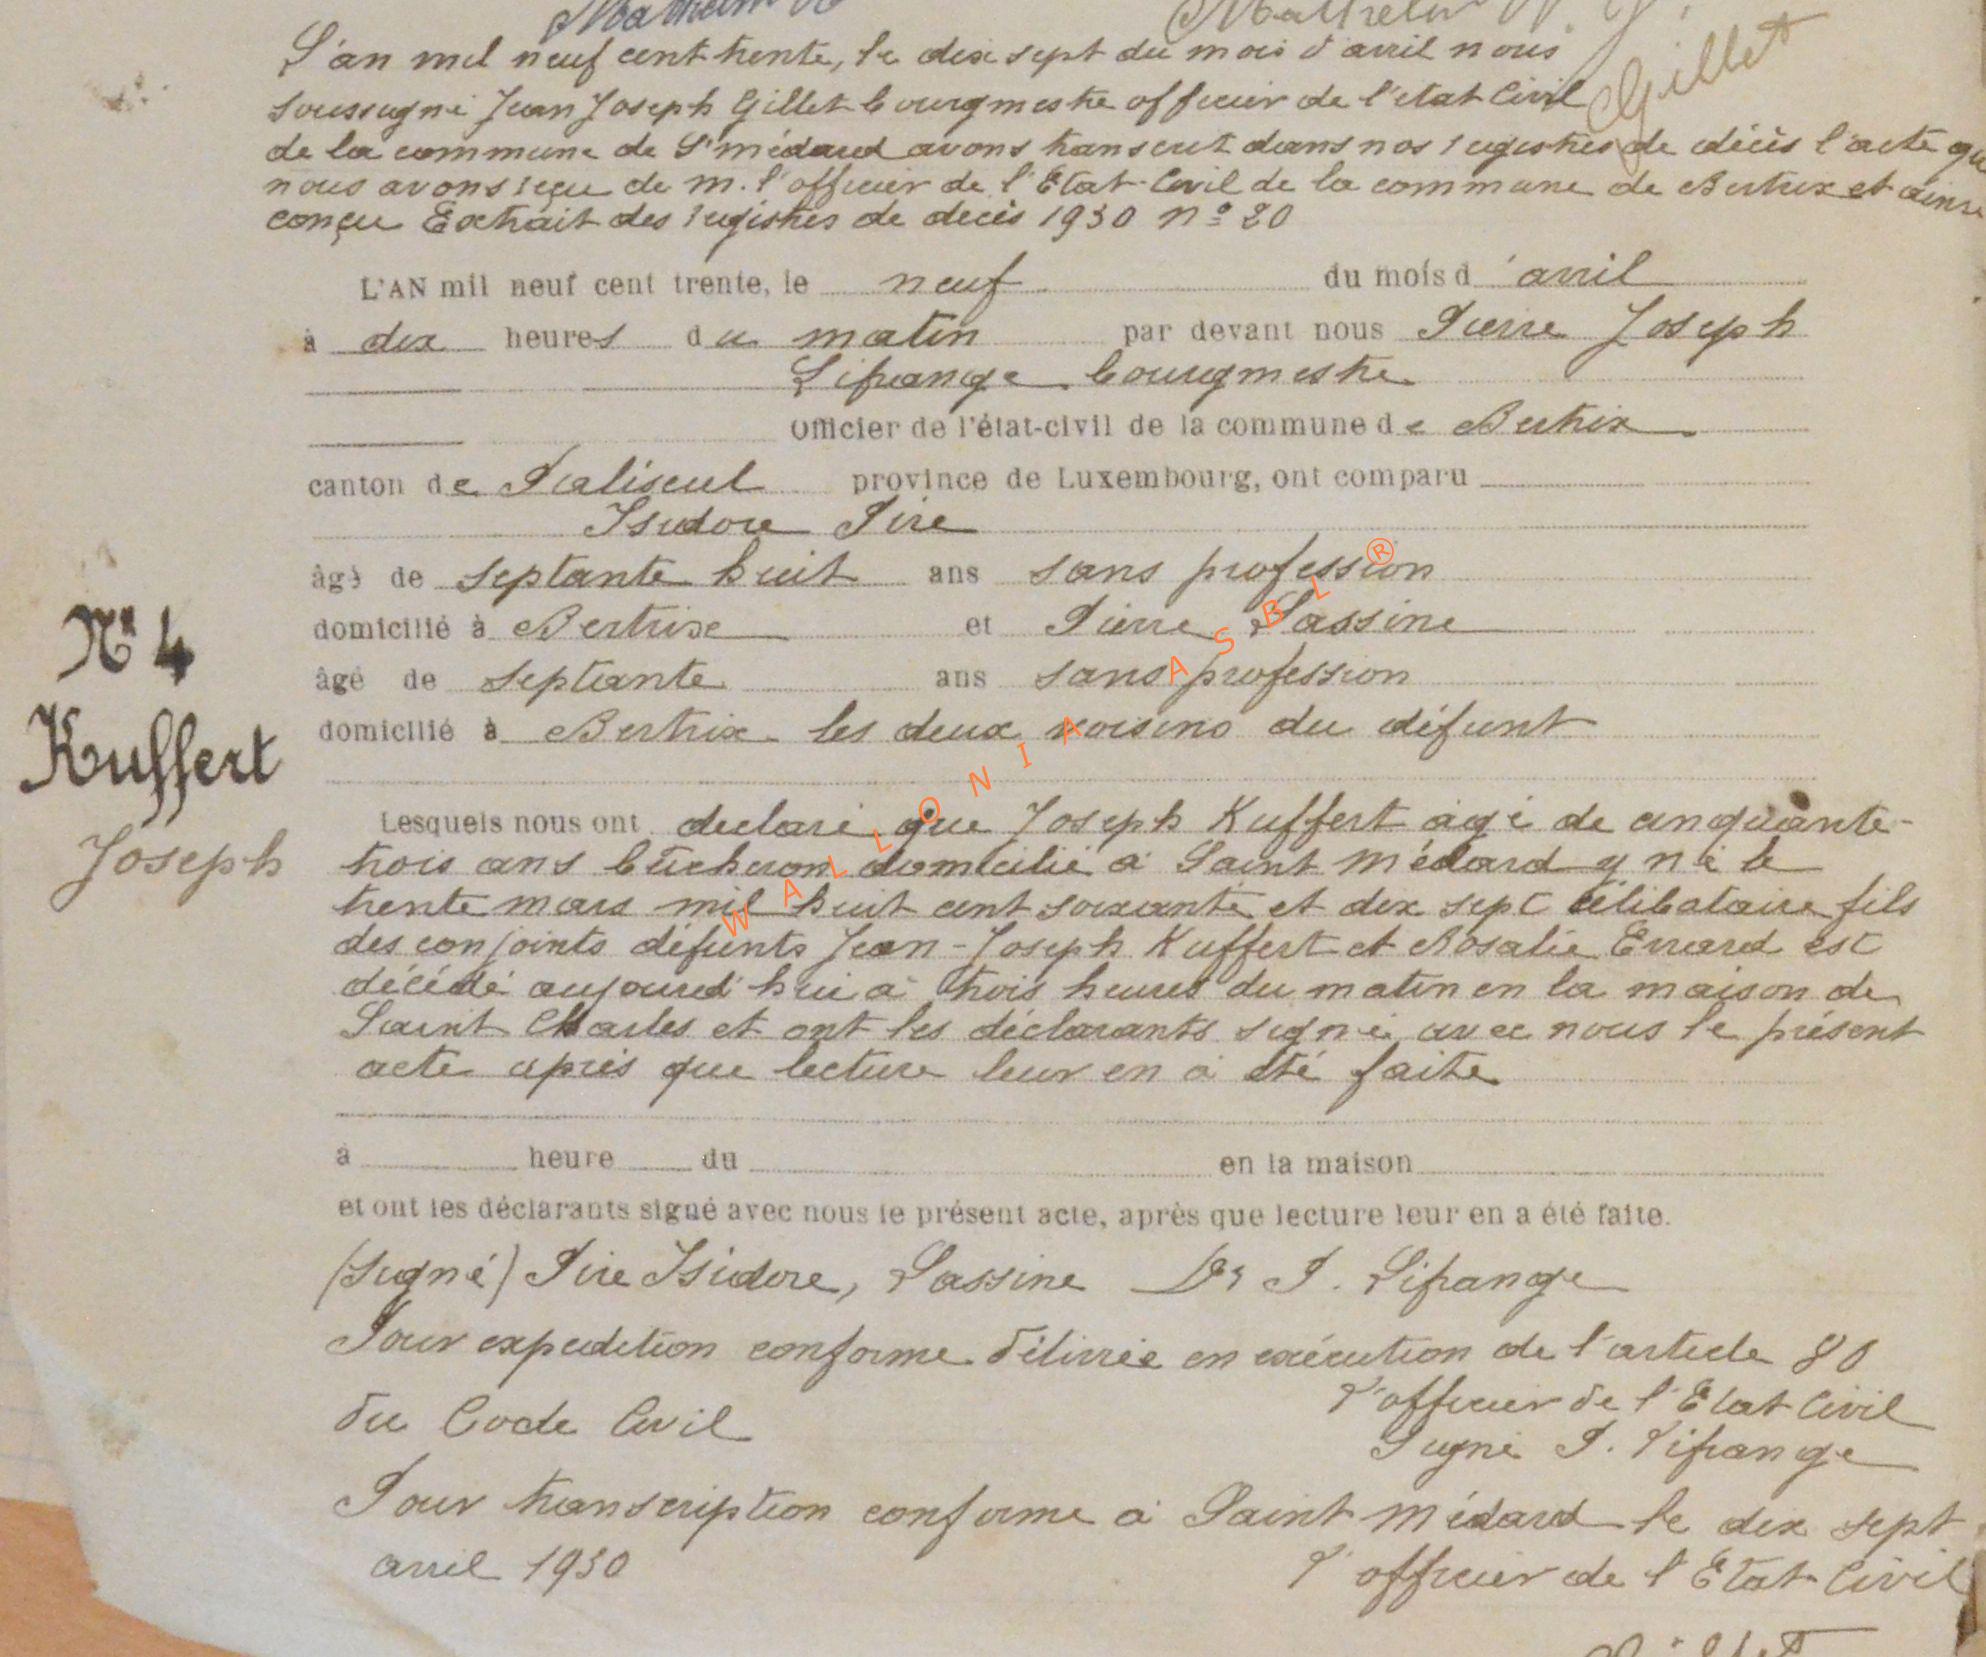 L'an mil neuf cent trente, le dix sept du mois d'avril nous
soussigné Jean Joseph Gillet bourgmestre officier de l'etat Civil
Gillet
de la commune de St médard avons transcrit dans nos registres de décès l'acte que
nous avons reçu de m. l'officier de l'Etat-Civil de la commune de Bertrix et ainsi
conçu Extrait des registres de décès 1930 nº 20
L'AN mil neuf cent trente, le neuf du mois d'avril
à dix heures du matin par devant nous Pierre Joseph
Lifrange bourgmestre
Officier de l'état-civil de la commune de Bertrix
canton de Paliseul province de Luxembourg, ont comparu
Isidore Pire
âgé de septante huit ans sans profession
domicilié à Bertrix et Pierre Lassine
âgé de septante ans sans profession
domicilié à Bertrix les deux voisins du défunt
Nº 4
Kuffert
Joseph
Lesquels nous ont déclaré que Joseph Kuffert agé de cinquante-
trois ans bûcheron domicilié à Saint Médard y né le
trente mars mil huit cent soixante et dix sept célibataire fils
des conjoints défunts Jean-Joseph Kuffert et Rosalie Errard est
décédé aujourd'hui à trois heures du matin en la maison de
Saint Charles et ont les déclarants signé avec nous le présent
acte après que lecture leur en a été faite
à heure du en la maison
et ont les déclarants signé avec nous le présent acte, après que lecture leur en a été faite.
(Signé) Pire Isidore, Lassine Dr P. Lifrange
Pour expedition conforme délivrée en exécution de l'article 80
du Code Civil
l'officier de l'Etat Civil
Signé P. Lifrange
Pour transcription conforme à Saint Médard le dix sept
avril 1930
l'officier de l'Etat Civil
WALLONIA ASBL ®